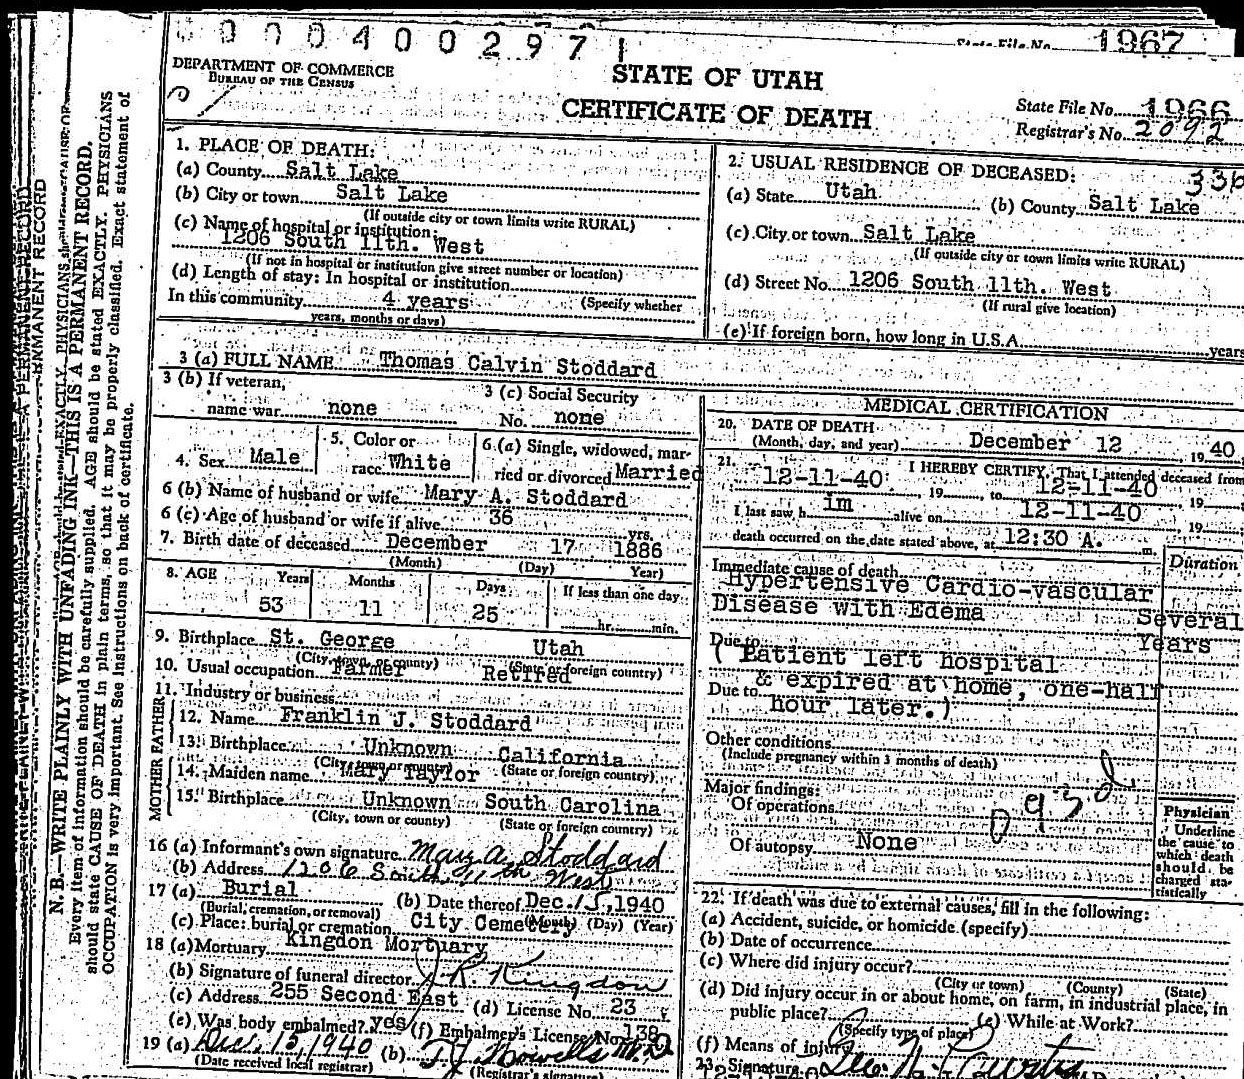 0004002971
State File No. 1967
DEPARTMENT OF COMMERCE
BUREAU OF THE CENSUS
STATE OF UTAH
CERTIFICATE OF DEATH
State File No. 1966
Registrar's No. 2092
1. PLACE OF DEATH:
(a) County Salt Lake
(b) City or town Salt Lake
(If outside city or town limits write RURAL)
(c) Name of hospital or institution:
1206 South 11th. West
(If not in hospital or institution give street number or location)
(d) Length of stay: In hospital or institution
In this community 4 years (Specify whether
years, months or days)
2. USUAL RESIDENCE OF DECEASED:
(a) State Utah (b) County Salt Lake
(c) City or town Salt Lake
(If outside city or town limits write RURAL)
(d) Street No. 1206 South 11th. West
(If rural give location)
(e) If foreign born, how long in U.S.A. years
3 (a) FULL NAME Thomas Calvin Stoddard
3 (b) If veteran,
name war none
3 (c) Social Security
No. none
4. Sex Male
5. Color or
race White
6 (a) Single, widowed, mar-
ried or divorced Married
6 (b) Name of husband or wife Mary A. Stoddard
6 (c) Age of husband or wife if alive 36 yrs.
7. Birth date of deceased December 17 1886
(Month) (Day) Year)
8. AGE Years Months Days If less than one day
53 11 25 hr. min.
9. Birthplace St. George Utah
(City, town, or county) (State or foreign country)
10. Usual occupation Farmer Retired
11. Industry or business
FATHER
12. Name Franklin J. Stoddard
13. Birthplace Unknown California
(City, town or county) (State or foreign country)
MOTHER
14. Maiden name Mary Taylor
15. Birthplace Unknown South Carolina
(City, town or county) (State or foreign country)
16 (a) Informant's own signature Mary A. Stoddard
(b) Address 1206 South 11th West
17 (a) Burial (b) Date thereof Dec. 15, 1940
(Burial, cremation, or removal) (Month) (Day) (Year)
(c) Place: burial or cremation City Cemetery
18 (a) Mortuary Kingdon Mortuary
(b) Signature of funeral director J. R. Kingdon
(c) Address 255 Second East (d) License No. 23
(e) Was body embalmed? yes (f) Embalmer's License No. 138
19 (a) Dec. 15, 1940 (b) M.D.
(Date received local registrar) (Registrar's signature)
MEDICAL CERTIFICATION
20. DATE OF DEATH
(Month, day, and year) December 12 1940
21. I HEREBY CERTIFY, That I attended deceased from
12-11-40, 19, to 12-11-40, 19
I last saw h im alive on 12-11-40, 19
death occurred on the date stated above, at 12:30 A. m.
Immediate cause of death Duration
Hypertensive Cardio-vascular
Disease with Edema Several
Years
Due to
( Patient left hospital
& expired at home, one-half
Due to
hour later.)
Other conditions
(Include pregnancy within 3 months of death)
Major findings:
Of operations
Of autopsy None
Physician
Underline
the cause to
which death
should be
charged sta-
tistically
22. If death was due to external causes, fill in the following:
(a) Accident, suicide, or homicide (specify)
(b) Date of occurrence
(c) Where did injury occur?
(City or town) (County) (State)
(d) Did injury occur in or about home, on farm, in industrial place, in
public place? (e) While at Work?
(Specify type of place)
(f) Means of injury
23. Signature
N. B.—WRITE PLAINLY WITH UNFADING INK—THIS IS A PERMANENT RECORD.
Every item of information should be carefully supplied. AGE should be stated EXACTLY. PHYSICIANS
should state CAUSE OF DEATH in plain terms, so that it may be properly classified. Exact statement of
OCCUPATION is very important. See instructions on back of certificate.